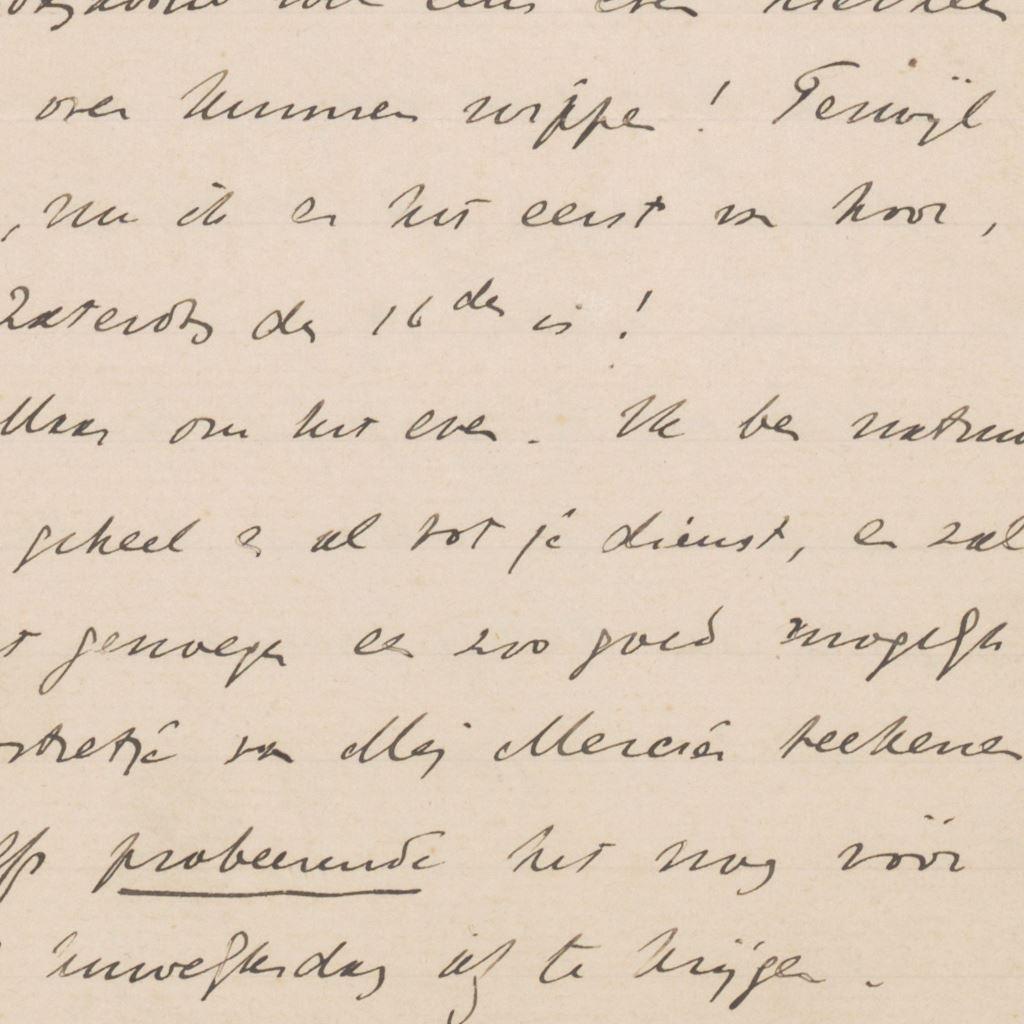 eens even
over kunnen wippen! Terwijl
, nu ik er het eerst van hoor,
Zaterdag den 16den is!
Maar om het even. Ik ben natuur
geheel en al tot je dienst, en zal
t genoegen een zoo goed mogelijk
rtretje van Mej Mercier teekenen
lfs probeerende het nog vóór
huwelijksdag af te krijgen.